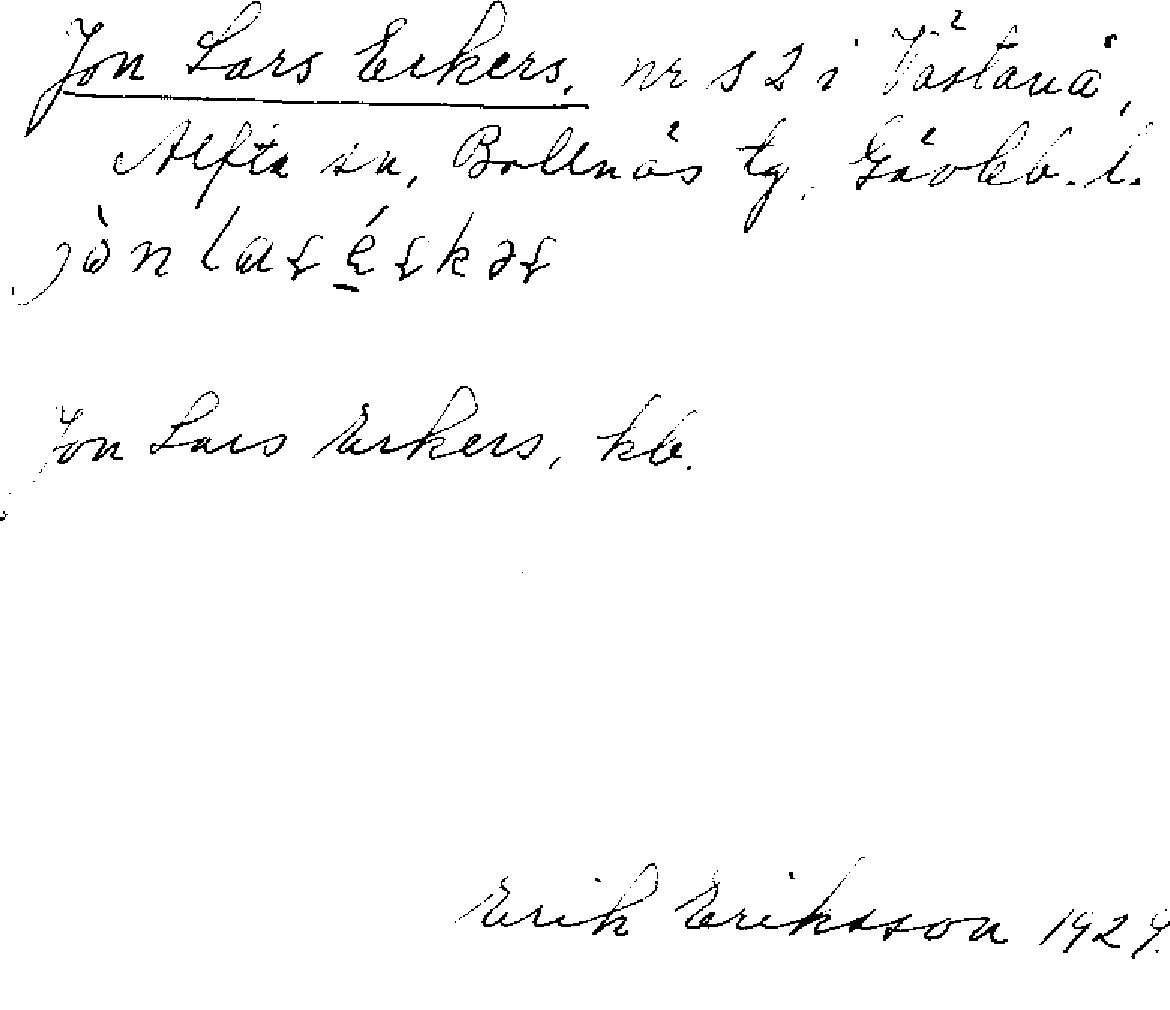 Jon Lars Erkers. nr 52 i Västanå,
Alfta sn, Bollnäs tg, Gävleb. l.
Jon Lars Erkers, kb.
Erik Eriksson 1924.